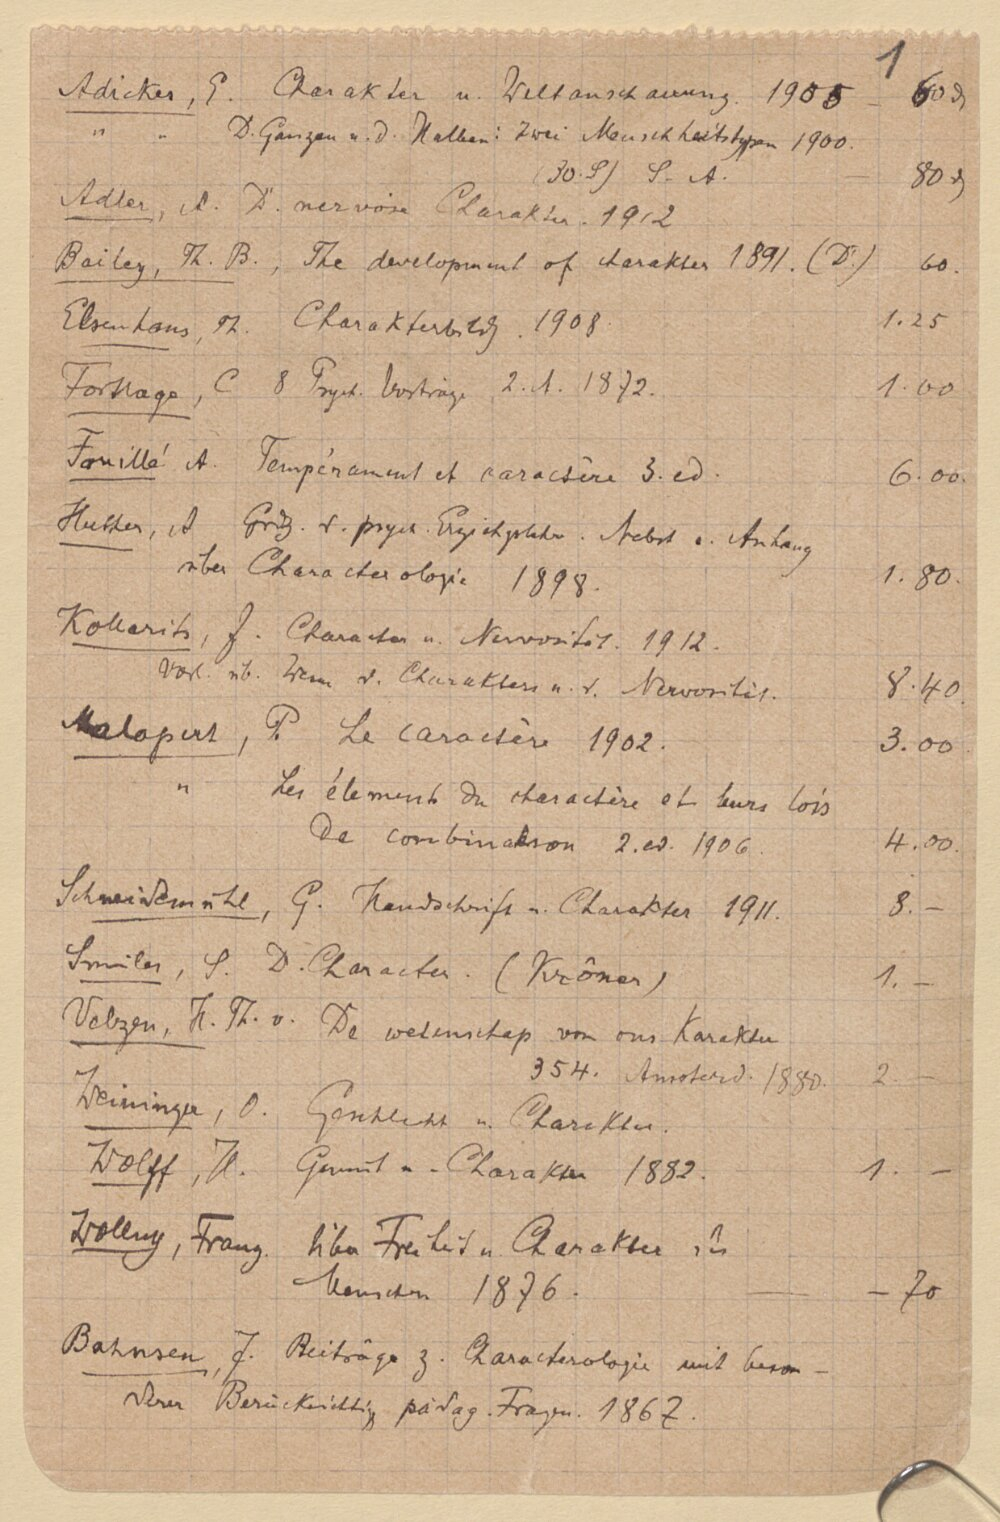 1
Adickes, E. Charakter u. Weltanschauung. 1905 – 60 ₰
" " D. Ganzen u. d. Halben: Zwei Menschheitstypen 1900.
(30. S) S. A. — 80 ₰
Adler, A. D. nervöse Charakter. 1912
Bailey, Th. B., The development of charakter 1891. (D.) 60.
Elsenhans, Th. Charakterbildg. 1908 1.25
Fortlage, C 8 Psych. Vorträge 2. A. 1872. 1.00
Fouillé A. Tempérament et caractère 3. ed. 6.00.
Huther, A Grdz. d. psych. Erziehgslehre. Nebst e. Anhang
über Characterologie 1898. 1.80.
Kollarits, J. Character u. Nervosität. 1912.
Vorl. üb. Wesen d. Charakters u. d. Nervosität. 8.40.
Malapert, P. Le caractère 1902. 3.00
" Les élements du charactère et leurs lois
de combinaison 2. ed. 1906. 4.00.
Schneidemühl, G. Handschrift u. Charakter 1911. 8.–
Smiles, S. D. Character. (Kröner) 1.–
Velzen, H. Th. v. De wetenschap von ons Karakter
354. Amsterd. 1880. 2 –
Weininger, O. Geschlecht u. Charakter.
Wolff, H. Gemüt u. Charakter 1882. 1. –
Wollny, Franz. Über Freiheit u. Charakter des
Menschen 1876. — – 70
Bahnsen, J. Beiträge z. Characterologie mit beson–
derer Berücksichtigg pädag. Fragen. 1867.